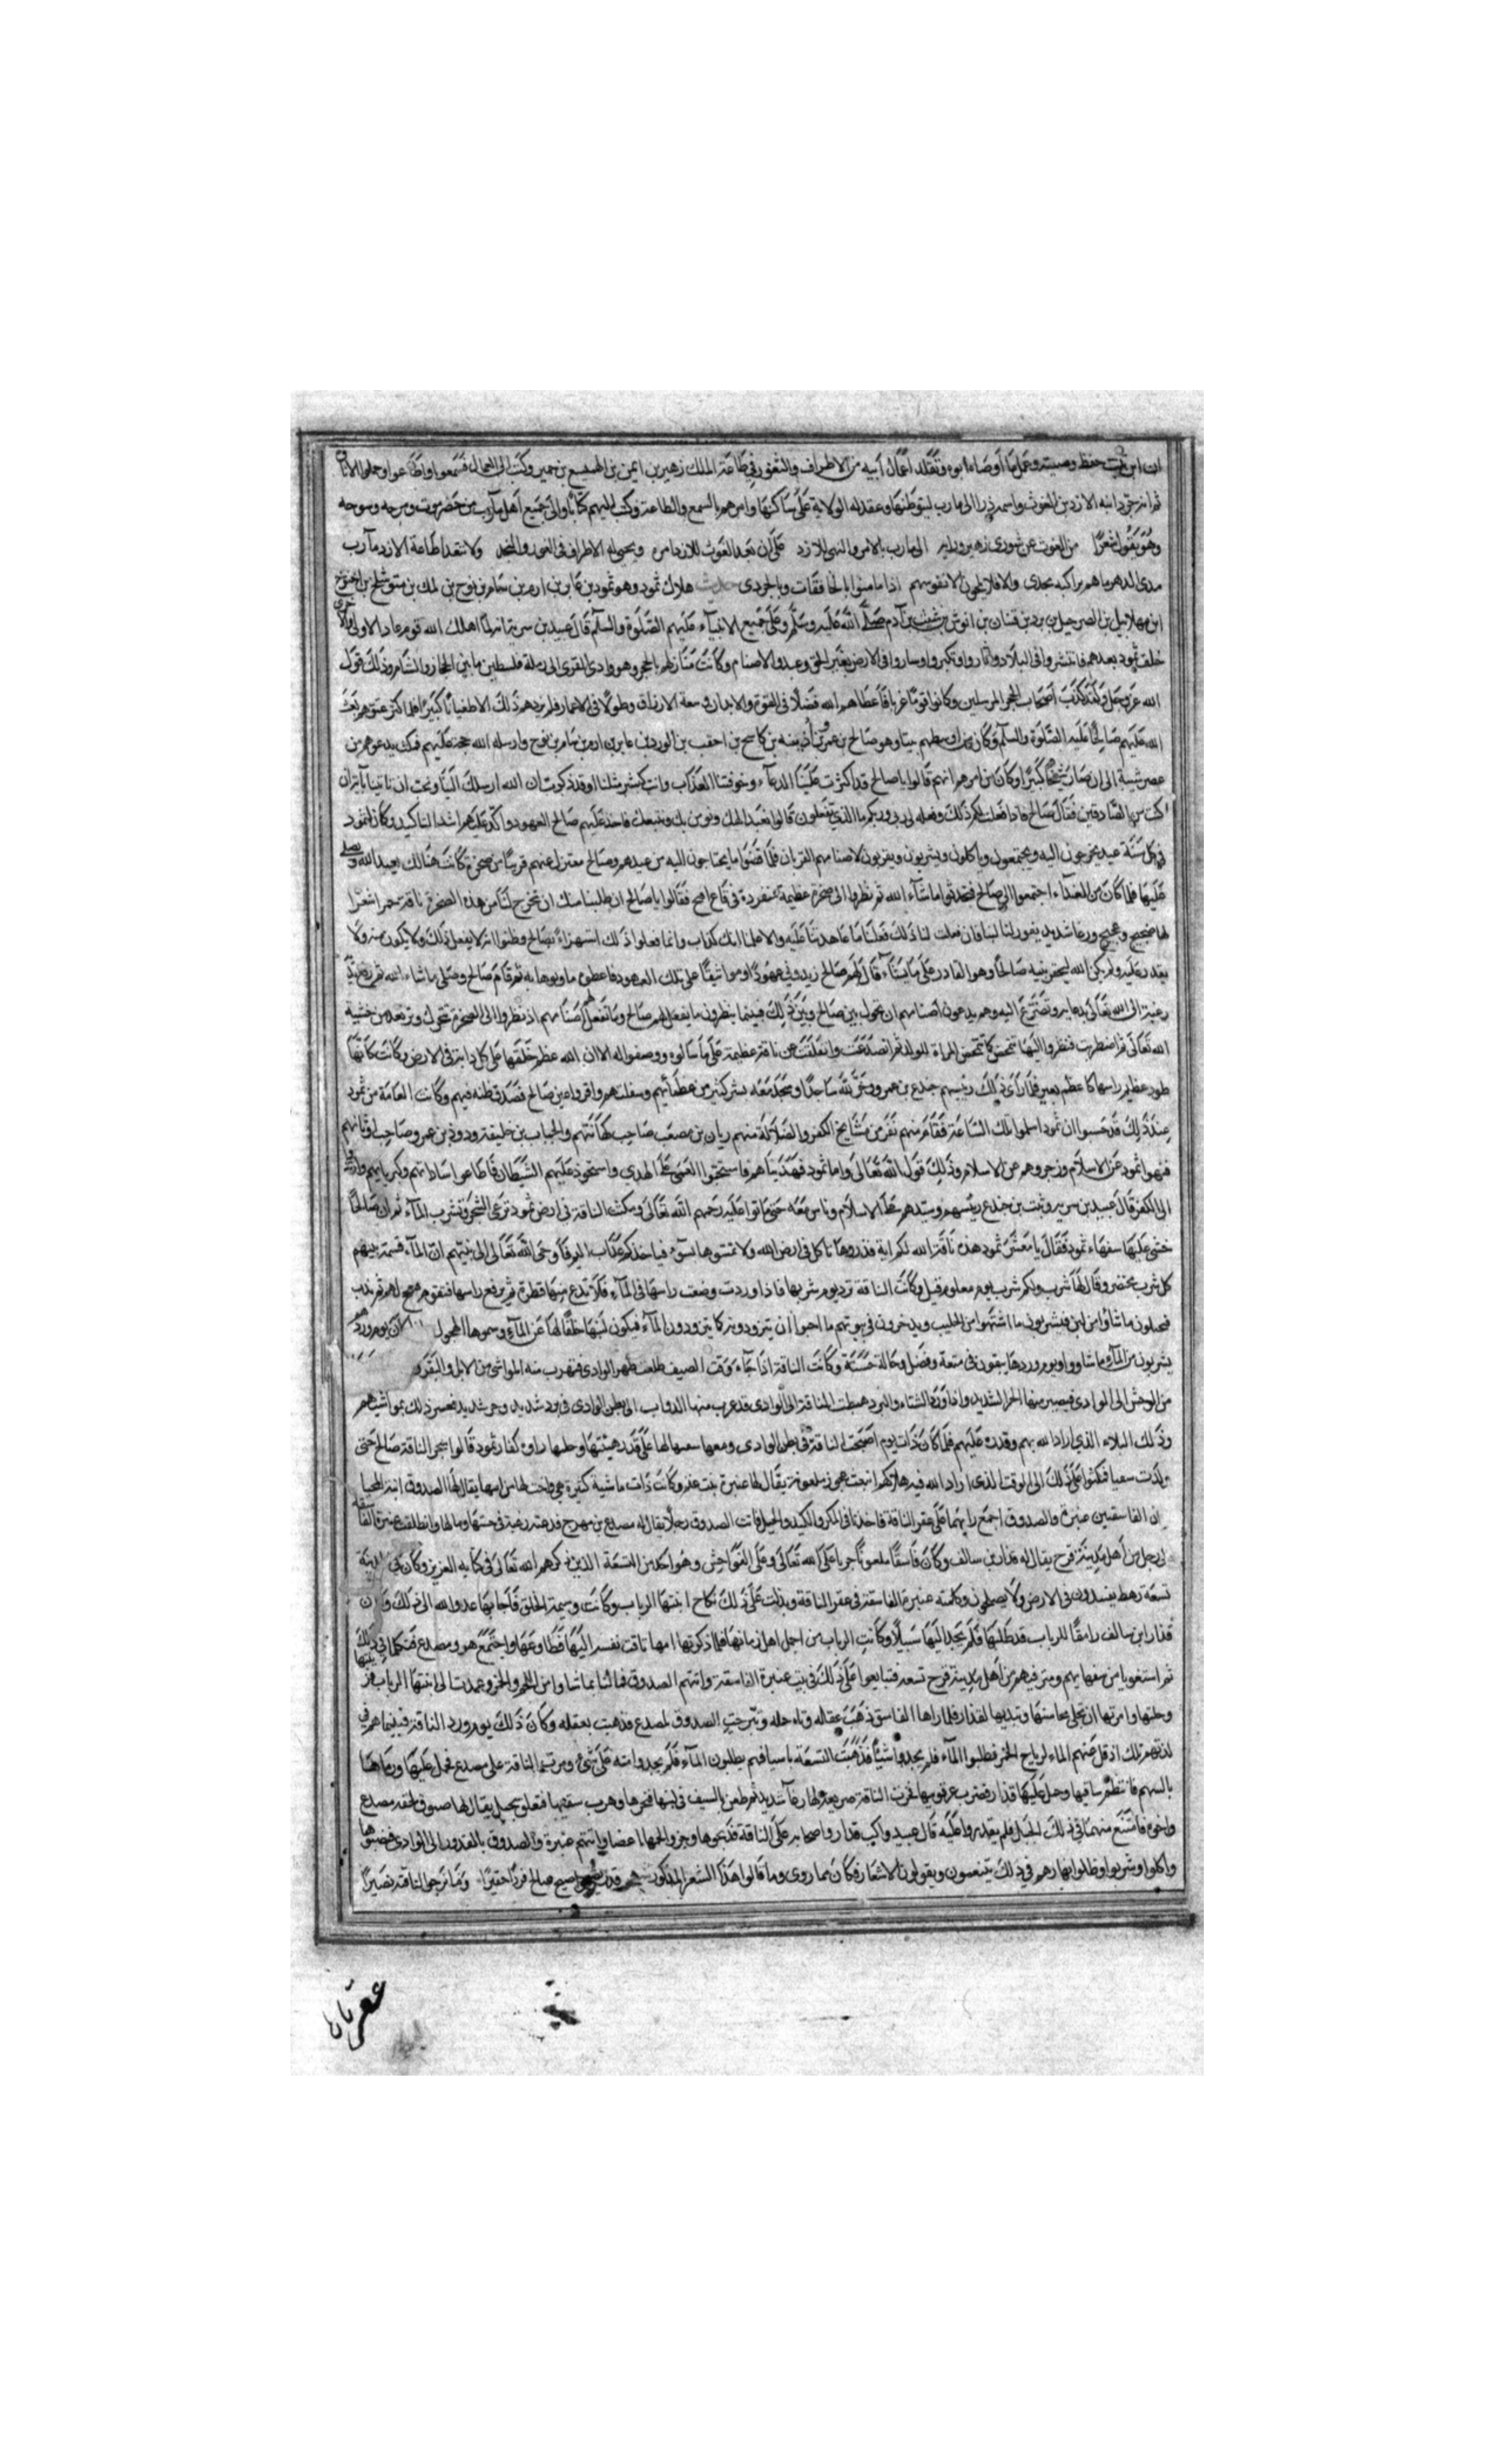 ان ابن نبت حفظ وصيته وعمل بما أوصاه ابوه وتقلد اعمال أبيه من الاطراف والثغور في طاعة الملك زهير بن ايمن بن الهميسع بن حمير وكتب الى العمال فسمعوا واطاعوا وحملوا
ثم انه جرد ابنه الازد بن الغوث واسمه ذرا الى مارب ليتوطنها وعقد له الولاية على ساكنها وامرهم بالسمع والطاعة وكتب اليهم كتابا والى جميع اهل مارب من حضرموت
وهو يقول شعرا من الغوث عن شورى زهير ورايه الى مارب بالامر والنهى للازد على ان بعد الغوث للازد امره ويجبى له الاطراف فى الغور والنجد ولا تنقد اطاعة الازد مآرب
مدى الدهر ما هم براكبه نجدى هلاك ثمود وهو ثمود بن عابر بن ارم بن سام بن نوح بن لمك بن متوشلخ بن اخنوخ
ابن مهلائيل بن قينان بن انوش بن شيث بن آدم صلى الله عليه وسلم وعلى جميع الانبياء عليهم الصلوة والسلم قال عبيد بن سرية انه لما اهلك الله قوم عاد الاولى
خلف ثمود بعدهم فانتشروا فى البلاد واثاروا وتكبروا وساروا فى الارض بغير الحق وعبدوا الاصنام وكانت منازلهم بالحجر وهو وادى القرى الى رملة فلسطين ما بين الحجاز والشام وذلك قول
الله عز وجل ولقد كذب اصحاب الحجر المرسلين وكانوا قوما عربا فاعطاهم الله فضلا فى القوة والابدان وسعة الارزاق وطولا فى الاعمار فلم يزدهم ذلك الا طغيانا كبيرا فلما كثر عتوهم بعث
الله عليهم صالحا عليه الصلوة والسلم وكان من اوسطهم بيتا وهو صالح بن عمرو بن كاشح بن احقب بن الوردين عابر بن ارم بن سام بن نوح وارسله الله حجة عليهم فمكث يدعوهم من
عصر شبيبة الى ان صار شيخا كبيرا وكان من امرهم انهم قالوا يا صالح قد اكثرت علينا الدعاء وخوفتنا العذاب وانت كبشر مثلنا وقد ذكرت ان الله ارسلك الينا ونحب ان تاتينا بآية ان
كنت من الصادقين فقال صالح فاذا فعلت لكم ذلك وفعله لى ربى وربكم ما الذي تفعلون قالوا نعبد الهك ونومن بك ونتبعك فاخذ عليهم صالح العهود واكد عليهم اشد التاكيد وكان لثمود
فى كل سنة عيد يخرجون اليه ويجتمعون وياكلون ويشربون ويقربون لاصنامهم القربان فلما قضوا ما يحتاجون اليه من عيدهم وصالح معتزل عنهم قريبا من صخرة كانت هنالك يعبد الله ويصلى
عليها فلما كان من الغداء اجتمعوا الى صالح فتحدثوا ما شاء الله ثم نظروا الى صخرة عظيمة منفردة فى قاع افيح فقالوا يا صالح ان طلبنا منك ان تخرج لنا من هذه الصخرة ناقة
لها ضجيج وعجيج ورغا شديد يفور لنا لبنا فان فعلت لنا ذلك فعلنا ما عاهدتنا عليه والا علمنا انك كذاب وانما فعلوا ذلك استهزاء بصالح وظنوا انه لا يفعل ذلك ولا يكون منه ولا
يقدر عليه ولم يكن الله ليخون نبيه صالحا وهو القادر على ما يشاء قال لهم صالح زيدونى عهودا ومواثيقا على تلك العهود فاعطوه ما وثقوا به ثم قام صالح وصلى ما شاء الله ثم رفع يديه
رغبة الى الله تعالى يدعا به وتضرع اليه وهم يدعون اصنامهم ان تحول بين صالح وبين ذلك فبينما ينظرون ما يفعل لهم صالح وما تفعل لهم اصنامهم اذ نظروا الى الصخرة تتحرك وترتعد من خشية
الله تعالى ثم اضطربت فنظروا اليها تتمخض كما تتمخض المراة للولد ثم انصدعت وانفلقت عن ناقة عظيمة على ما سالوه ووصفوا له الا ان الله عظم خلقها على كل دابة فى الارض وكانت كانها
طود عظيم راسها كاعظم بعير فلما راى ذلك رئيسهم جندع بن عمرو خر لله ساجدا وسجد معه بشر كثير من عظمائهم وسفلتهم واقروا بدين صالح فصدق ظنه فيهم وكانت العامة من ثمود
عند ذلك قد هموا ان ثمود اسلموا تلك الساعة فقام منهم نفر من مشايخ الكفر والضلالة منهم ريان بن مصعب صاحب كهانتهم والحباب بن خليفة ودوذ بن عمرو صاحب اوثانهم
فنهوا ثمود عن الاسلام وزجروهم عن الاسلام وذلك قول الله تعالى واما ثمود فهديناهم فاستحبوا العمى على الهدى واستحوذ عليهم الشيطان فاطاعوا ساداتهم وكبرايهم
الى الكفر قال عبيد بن سرية وثبت بن جندع رئيسهم وسيدهم على الاسلام وناس معه حتى ماتوا عليه رحمهم الله تعالى ومكثت الناقة فى ارض ثمود ترعى الشجر وتشرب الماء ثم ان صالحا
خشى عليها سفهاء ثمود فقال يا معشر ثمود هذه ناقة الله لكم اية فذروها تاكل فى ارض الله ولا تمسوها بسوء فياخذكم عذاب اليم فاوحى الله تعالى الى نبيهم ان الماء قسمة بينهم
كل شرب محتضر وقال لها شرب ولكم شرب يوم معلوم قيل وكانت الناقة ترد يوم شربها فاذا وردت وضعت راسها فى الماء فلا تدع منها قطرة ثم ترفع راسها
فيحملون ما شاؤا من لبن فيشربون ما اشتهوا من الحليب ويدخرون فى بيوتهم ما احبوا ان يتزودونه كما يتزودون الماء فيكون لبنها خلفا لها عن الماء
يشربون من الماء ما شاوا ويوم وردها يبقون فى متعة وفضل وحالة حسنة وكانت الناقة اذا جاء وقت الصيف طلعت ظهر الوادى فتهرب منه المواشى من الابل والبقر
من الوحش الى الوادى فيصيبه منها الحر الشديد واذا وقع الشتاء والبرد هبطت الناقة الى الوادى فتهرب منها الدواب الى بطن الوادى فى برد شديد وحر شديد فضر ذلك بمواشيهم
وذلك البلاء الذى اراد الله بهم وقدره عليهم فلما كان ذات يوم اصبحت الناقة فى بطن الوادى ومعها سقبها لها على قدر هيئتها وحليها راوه كفار ثمود قالوا سحر الناقة صالح حتى
ولدت سقبا فمكثوا على ذلك الى الوقت الذى اراد الله فيه هلاكهم انبعث عجوز ملعونة يقال لها عنبرة بنت غنم وكانت ذات ماشية كثيرة هى واخت لها من امها يقال لها الصدوق ابنة المحيا
ان الفاسقتين عنبرة والصدوق اجمع رايهما على عقر الناقة فاخذتا فى المكر والكيد والحيل فاتت الصدوق رجلا يقال له مصدع بن مهرج فدعته رغبة فى حسنها ومالها وانطلقت عنبرة الفاسقة
الى رجل من اهل مدينة قرح يقال له قدار بن سالف وكان فاسقا ملعونا جريا على الله تعالى وعلى الفواحش وهو احد من التسعة الذين ذكرهم الله تعالى فى كتابه العزيز وكان فى المدينة
تسعة رهط يفسدون فى الارض ولا يصلحون وكلمته عنبرة الفاسقة فى عقر الناقة وبذلت على ذلك نكاح ابنتها الرباب وكانت وسيمة الخلق فاجابها عدو الله الى ذلك وكان
قدار ابن سالف رامقا للرباب قد طلبها فلم يجد اليها سبيلا وكانت الرباب من اجمل اهل زمانها فلما ذكرتها امها تاقت نفسه اليها فطاوعها واجتمع هو ومصدع فتكلما فى ذلك
ثم استغويا من سفهايهم ومترفيهم من اهل مدينة قرح تسعه فتبايعوا على ذلك فى بيت عنبرة الفاسقة واتتهم الصدوق فى الثنا بما شاوا من اللحم والخمر وعمدت الى ابنتها الرباب
وحلتها وامرتها ان تجلى محاسنها وتبديها لقدار فلما راها الفاسق ذهب عقله وتاه حلمه وتبرجت الصدوق لمصدع فذهبت بعقله وكان ذلك يوم ورد الناقة فبينما هم فى
لذتهم تلك اذ قل عنهم الماء لمزاج الخمر فطلبوا الماء فلم يجدوا شيئا فذهبت التسعة باسيافهم يطلبون الماء فلم يجدوا منه على شىء ومرت بهم الناقة على مصدع فحمل عليها ورماها
بالسهم فانتظم ساقيها وحمل عليها قدار فضرب عرقوبيها فخرت الناقة صريعة ولها رغآ شديد ثم طعن بالسيف فى لبتها فنحرها وهرب سقبها فتعلق بجبل يقال له صنو فلحقه مصدع
واخوه فامتنع منهما فى ذلك الجبل فلم يقدروا عليه قال عبيد واكب قدار واصحابه على الناقة فذبحوها وجزوا لحمها اعضا واتتهم عنبرة والصدوق بالقدور الى الوادى
واكلوا وشربوا وظلوا نهارهم فى ذلك يتنعمون ويقولون الاشعار فكان مما روى وما قالوا هذا الشعر المذكور اصبح صالح فردا حقيرا وما نرجو لناقته نصيرا
عقرناها